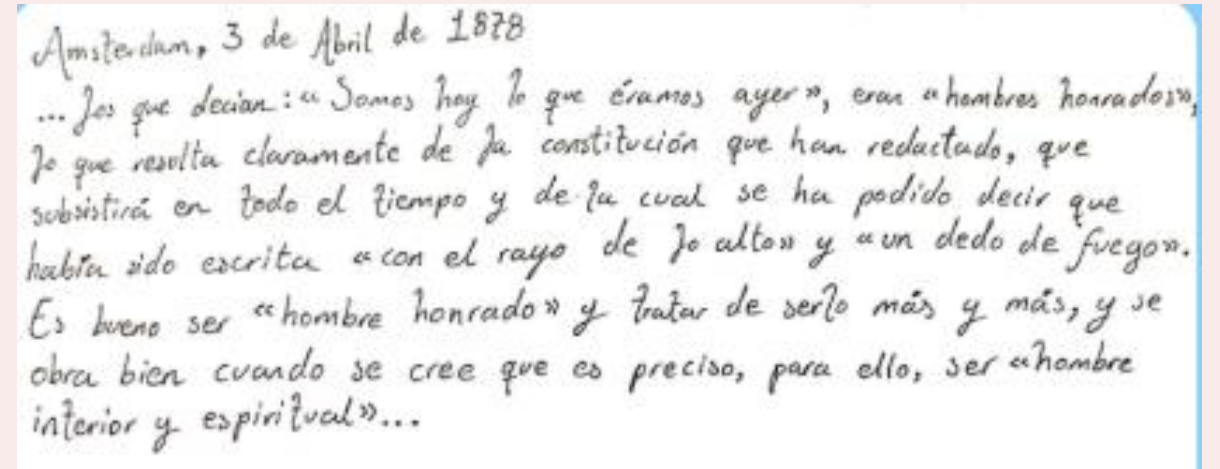 Amsterdam, 3 de Abril de 1878
... Los que decian: «Somos hoy lo que éramos ayer», eran «hombres honrados»,
lo que resulta claramente de la constitución que han redactado, que
subsistirá en todo el tiempo y de la cual se ha podido decir que
había sido escrita «con el rayo de lo alto» y «un dedo de fuego».
Es bueno ser «hombre honrado» y tratar de serlo más y más, y se
obra bien cuando se cree que es preciso, para ello, ser «hombre
interior y espiritual»...